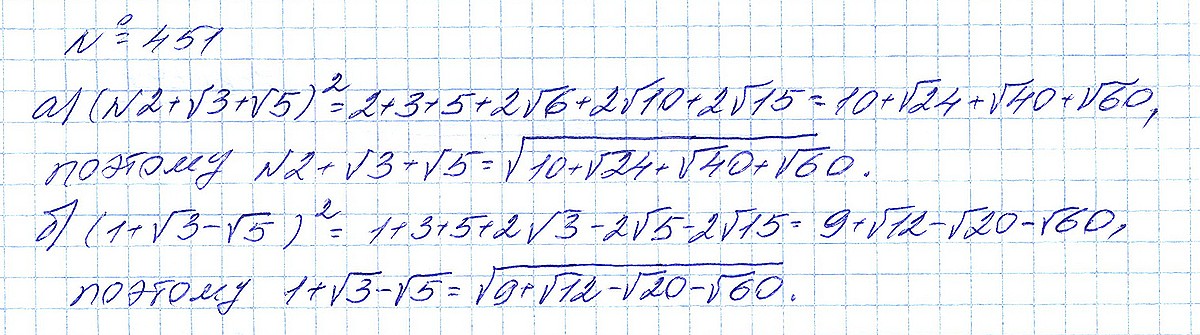 № 451
а) (√2+√3+√5)²=2+3+5+2√6+2√10+2√15=10+√24+√40+√60,
поэтому √2+√3+√5=√(10+√24+√40+√60).
б) (1+√3-√5)²= 1+3+5+2√3-2√5-2√15= 9+√12-√20-√60,
поэтому 1+√3-√5=√(9+√12-√20-√60).